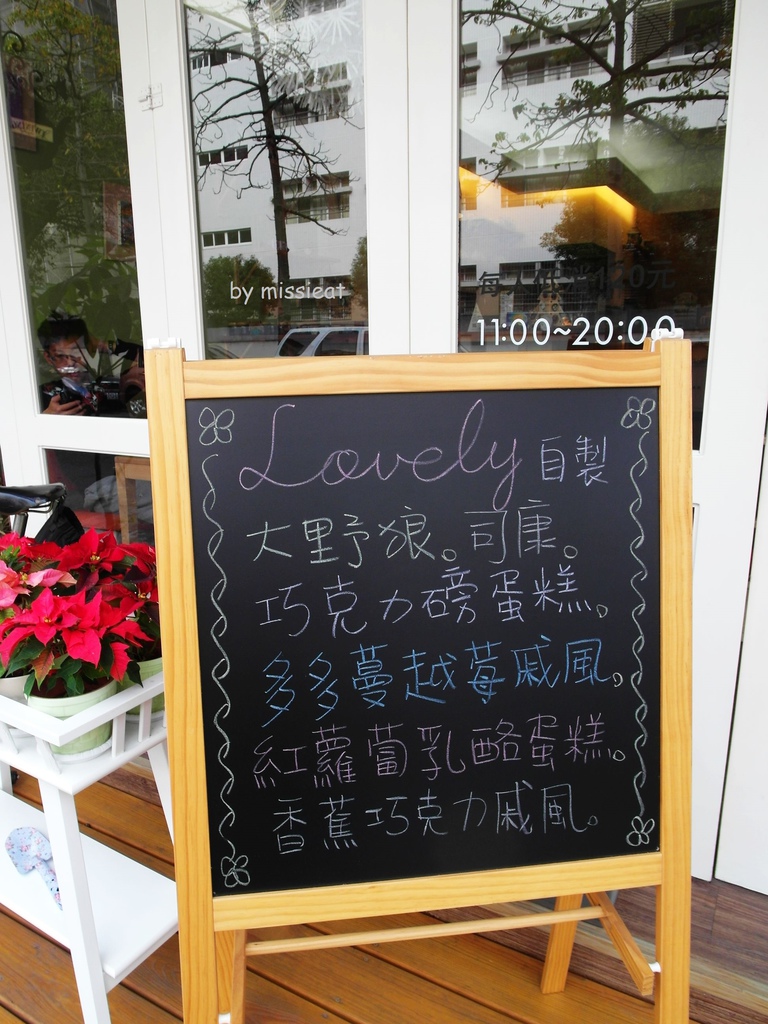 by missieat
每人低消120元
11:00~20:00
Lovely 自製
大野狼。司康。
巧克力磅蛋糕。
多多蔓越莓戚風。
紅蘿蔔乳酪蛋糕。
香蕉巧克力戚風。